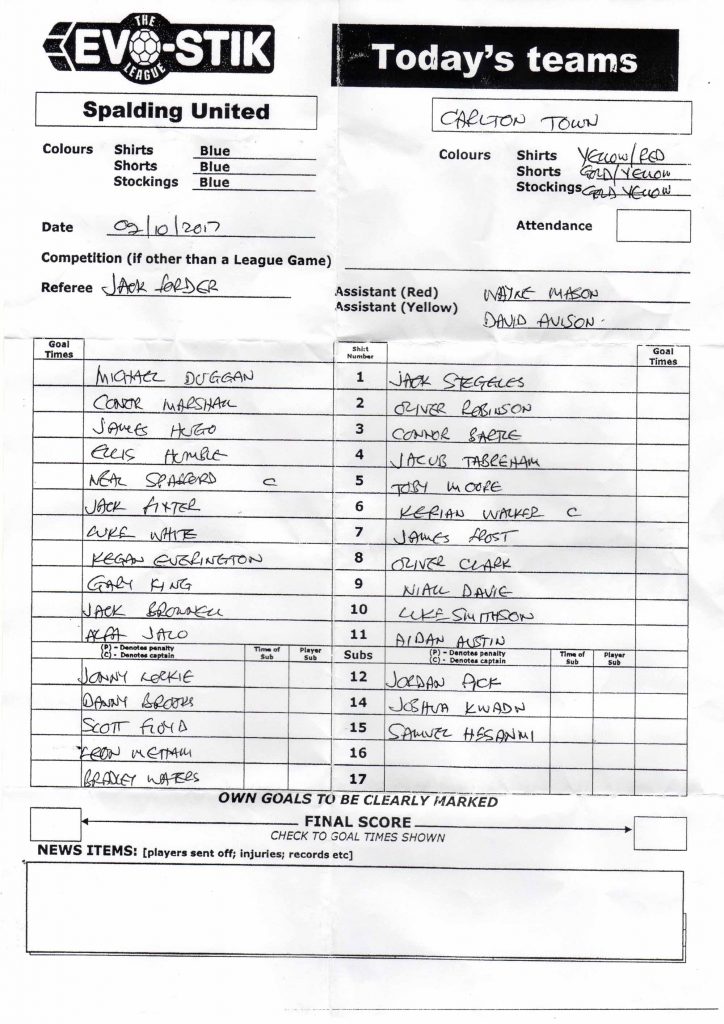 THE
EVO-STIK
LEAGUE
Today's teams
Spalding United
CARLTON TOWN
Colours Shirts Blue
Shorts Blue
Stockings Blue
Colours Shirts YELLOW/RED
Shorts GOLD/YELLOW
Stockings GOLD YELLOW
Date 02/10/2017
Attendance
Competition (if other than a League Game)
Referee JACK FORDER
Assistant (Red) WAYNE MASON
Assistant (Yellow) DAVID AVISON
Goal Times Shirt Number Goal Times
MICHAEL DUGGAN 1 JACK STEGELES
CONOR MARSHALL 2 OLIVER ROBINSON
JAMES HUGO 3 CONNOR BARTLE
ELLIS HUMBLE 4 JACOB TABREHAM
NEAL SPAFFORD C 5 TOBY MOORE
JACK FIXTER 6 KERIAN WALKER C
LUKE WHITE 7 JAMES FROST
KEGAN EVERINGTON 8 OLIVER CLARK
GARY KING 9 NIALL DAVIE
JACK BROWNELL 10 LUKE SMITHSON
ALFA JALO 11 AIDAN AUSTIN
(P) - Denotes penalty (C) - Denotes captain Time of Sub Player Sub Subs (P) - Denotes penalty (C) - Denotes captain Time of Sub Player Sub
JONNY LORKIE 12 JORDAN
DANNY BROOKS 14 JOSHUA KWADN
SCOTT FLOYD 15 SAMUEL HESANMI
LEON METTAM 16
BRADLEY WATERS 17
OWN GOALS TO BE CLEARLY MARKED
FINAL SCORE
CHECK TO GOAL TIMES SHOWN
NEWS ITEMS: [players sent off; injuries; records etc]